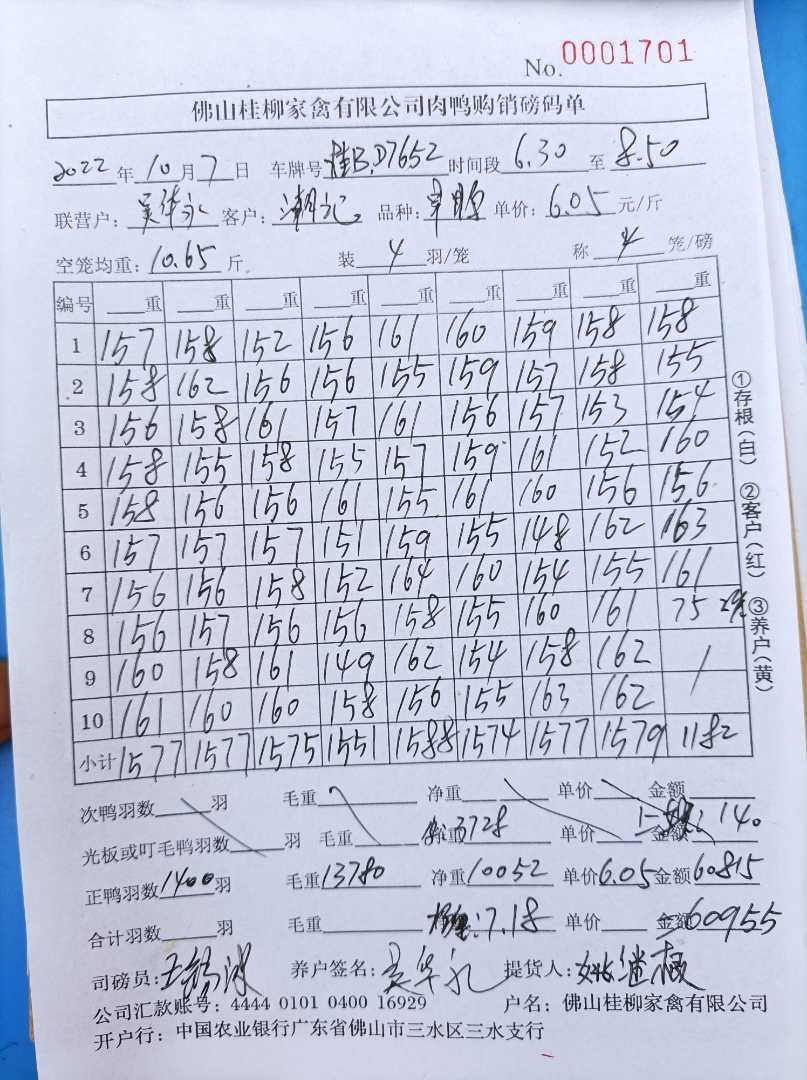 No. 0001701
佛山桂柳家禽有限公司肉鸭购销磅码单
2022年10月7日 车牌号桂B.D7652时间段6.30至8.50
联营户:吴华永 客户:潮记 品种: 单价:6.05元/斤
空笼均重:10.65斤 装4羽/笼 称4笼/磅
编号 重 重 重 重 重 重 重 重 重
1 157 158 152 156 161 160 159 158 158
2 158 162 156 156 155 159 157 158 155
3 156 158 161 157 161 156 157 153 154
4 158 155 158 155 157 159 161 152 160
5 158 156 156 161 155 161 160 156 156
6 157 157 157 151 159 155 148 162 163
7 156 156 158 152 164 160 154 155 161
8 156 157 156 156 158 155 160 161 75
9 160 158 161 149 162 154 158 162
10 161 160 160 158 156 155 163 162
小计 1577 1577 1575 1551 1588 1574 1577 1579 1182
①存根(白) ②客户(红) ③养户(黄)
次鸭羽数 羽 毛重 净重 单价 金额
光板或叮毛鸭羽数 羽 毛重 3728 单价 金额 140
正鸭羽数1400羽 毛重13780 净重10052 单价6.05金额60815
合计羽数 羽 毛重 :7.18 单价 金额60955
司磅员: 养户签名:吴华永 提货人:姚继极
公司汇款账号:4444 0101 0400 16929 户名:佛山桂柳家禽有限公司
开户行:中国农业银行广东省佛山市三水区三水支行